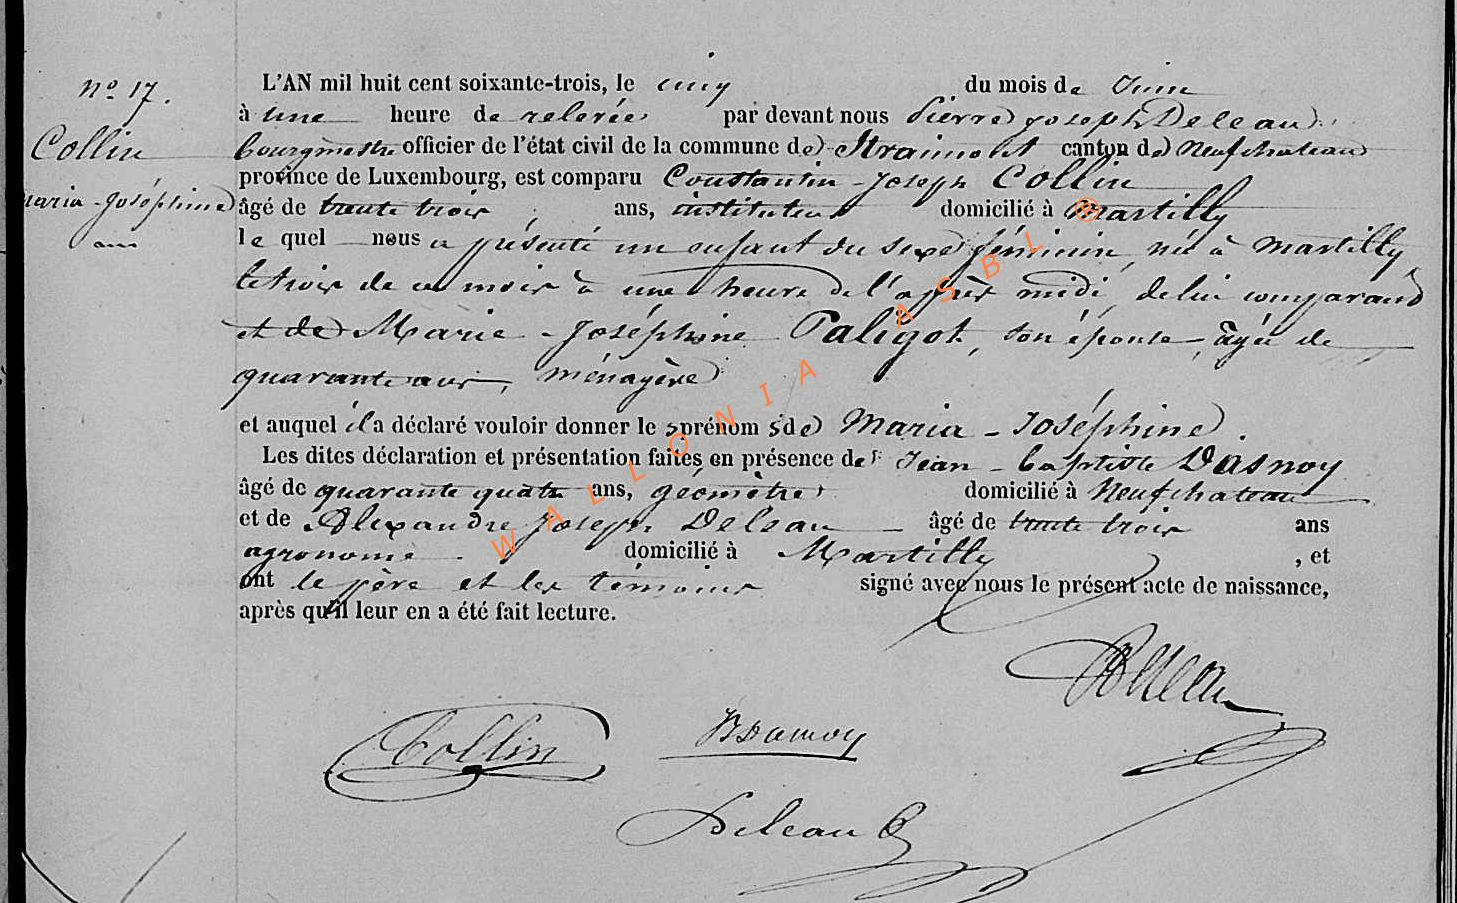 nº 17.
Collin
Maria-Joséphine
L'AN mil huit cent soixante-trois, le cinq du mois de Juin
à une heure de relevée par devant nous Pierre Joseph Deleau
bourgmestre officier de l'état civil de la commune de Straimont canton de Neufchateau
province de Luxembourg, est comparu Constantin-Joseph Collin
âgé de trente trois ans, instituteur domicilié à Martilly
lequel nous a présenté un enfant du sexe féminin, né à Martilly
le trois de ce mois à une heure de l'après midi, de lui comparant
et de Marie-Joséphine Paligot, son épouse, âgée de
quarante ans, ménagère
et auquel il a déclaré vouloir donner les prénoms de Maria-Joséphine.
Les dites déclaration et présentation faites en présence de Jean-baptiste Dasnoy
âgé de quarante quatre ans, géomètre domicilié à Neufchateau
et de Alexandre Joseph Deleau âgé de trente trois ans
agronome. domicilié à Martilly, et
ont le père et les témoins signé avec nous le présent acte de naissance,
après qu'il leur en a été fait lecture.
Deleau
Collin
Dasnoy
Deleau
WALLONIA ASBL ®